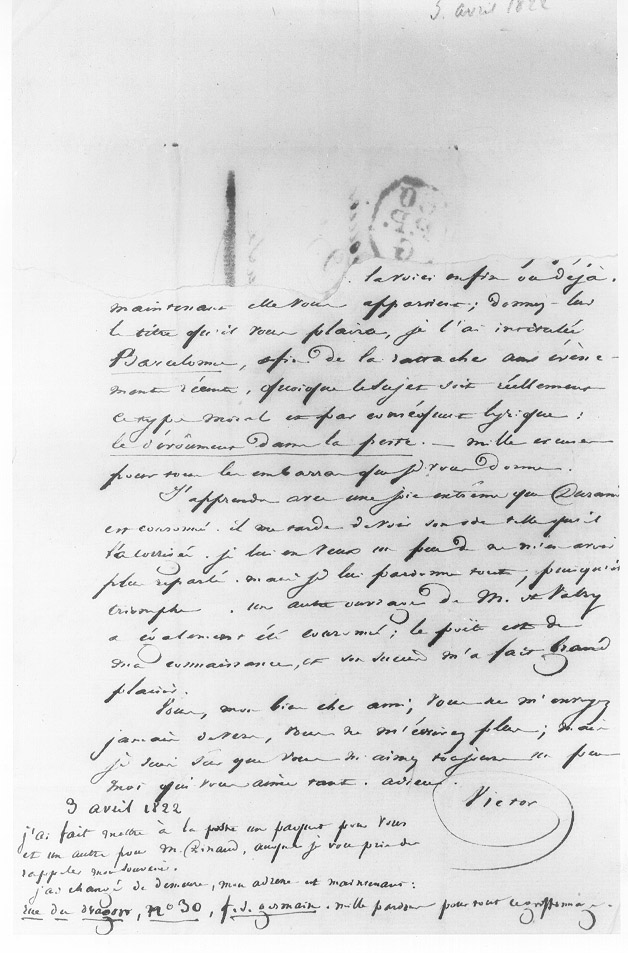 3. avril 1822
la voici enfin ou déjà.
maintenant elle vous appartient; donnez-lui
le titre qu'il vous plaira, je l'ai intitulée
Barcelone, afin de la rattacher aux évène-
ments récents, quoique le sujet soit réellement
ce type moral et par conséquent lyrique:
le dévoûment dans la peste. — mille excuses
pour tous les embarras que je vous donne.
J'apprends avec une joie extrême que Durand
est couronné. il me tarde de voir son ode telle qu'il
l'a corrigée. je lui en veux un peu de ne m'en avoir
plus reparlé. mais je lui pardonne tout, puisqu'il
triomphe. un autre ouvrage de M. St Valry
a également été couronné; le poëte est de
ma connaissance, et son succès m'a fait grand
plaisir.
Vous, mon bien cher ami, vous ne m'envoyez
jamais de vers, vous ne m'écrivez plus; mais
je suis sûr que vous m'aimez toujours un peu
moi qui vous aime tant. adieu.
Victor
3 avril 1822
j'ai fait mettre à la poste un paquet pour vous
et un autre pour M. Pinaud, auquel je vous prie de
rappeler mon souvenir.
j'ai changé de demeure, mon adresse est maintenant:
rue du dragon, n° 30, f. s. germain. mille pardons pour tout ce griffonnage.